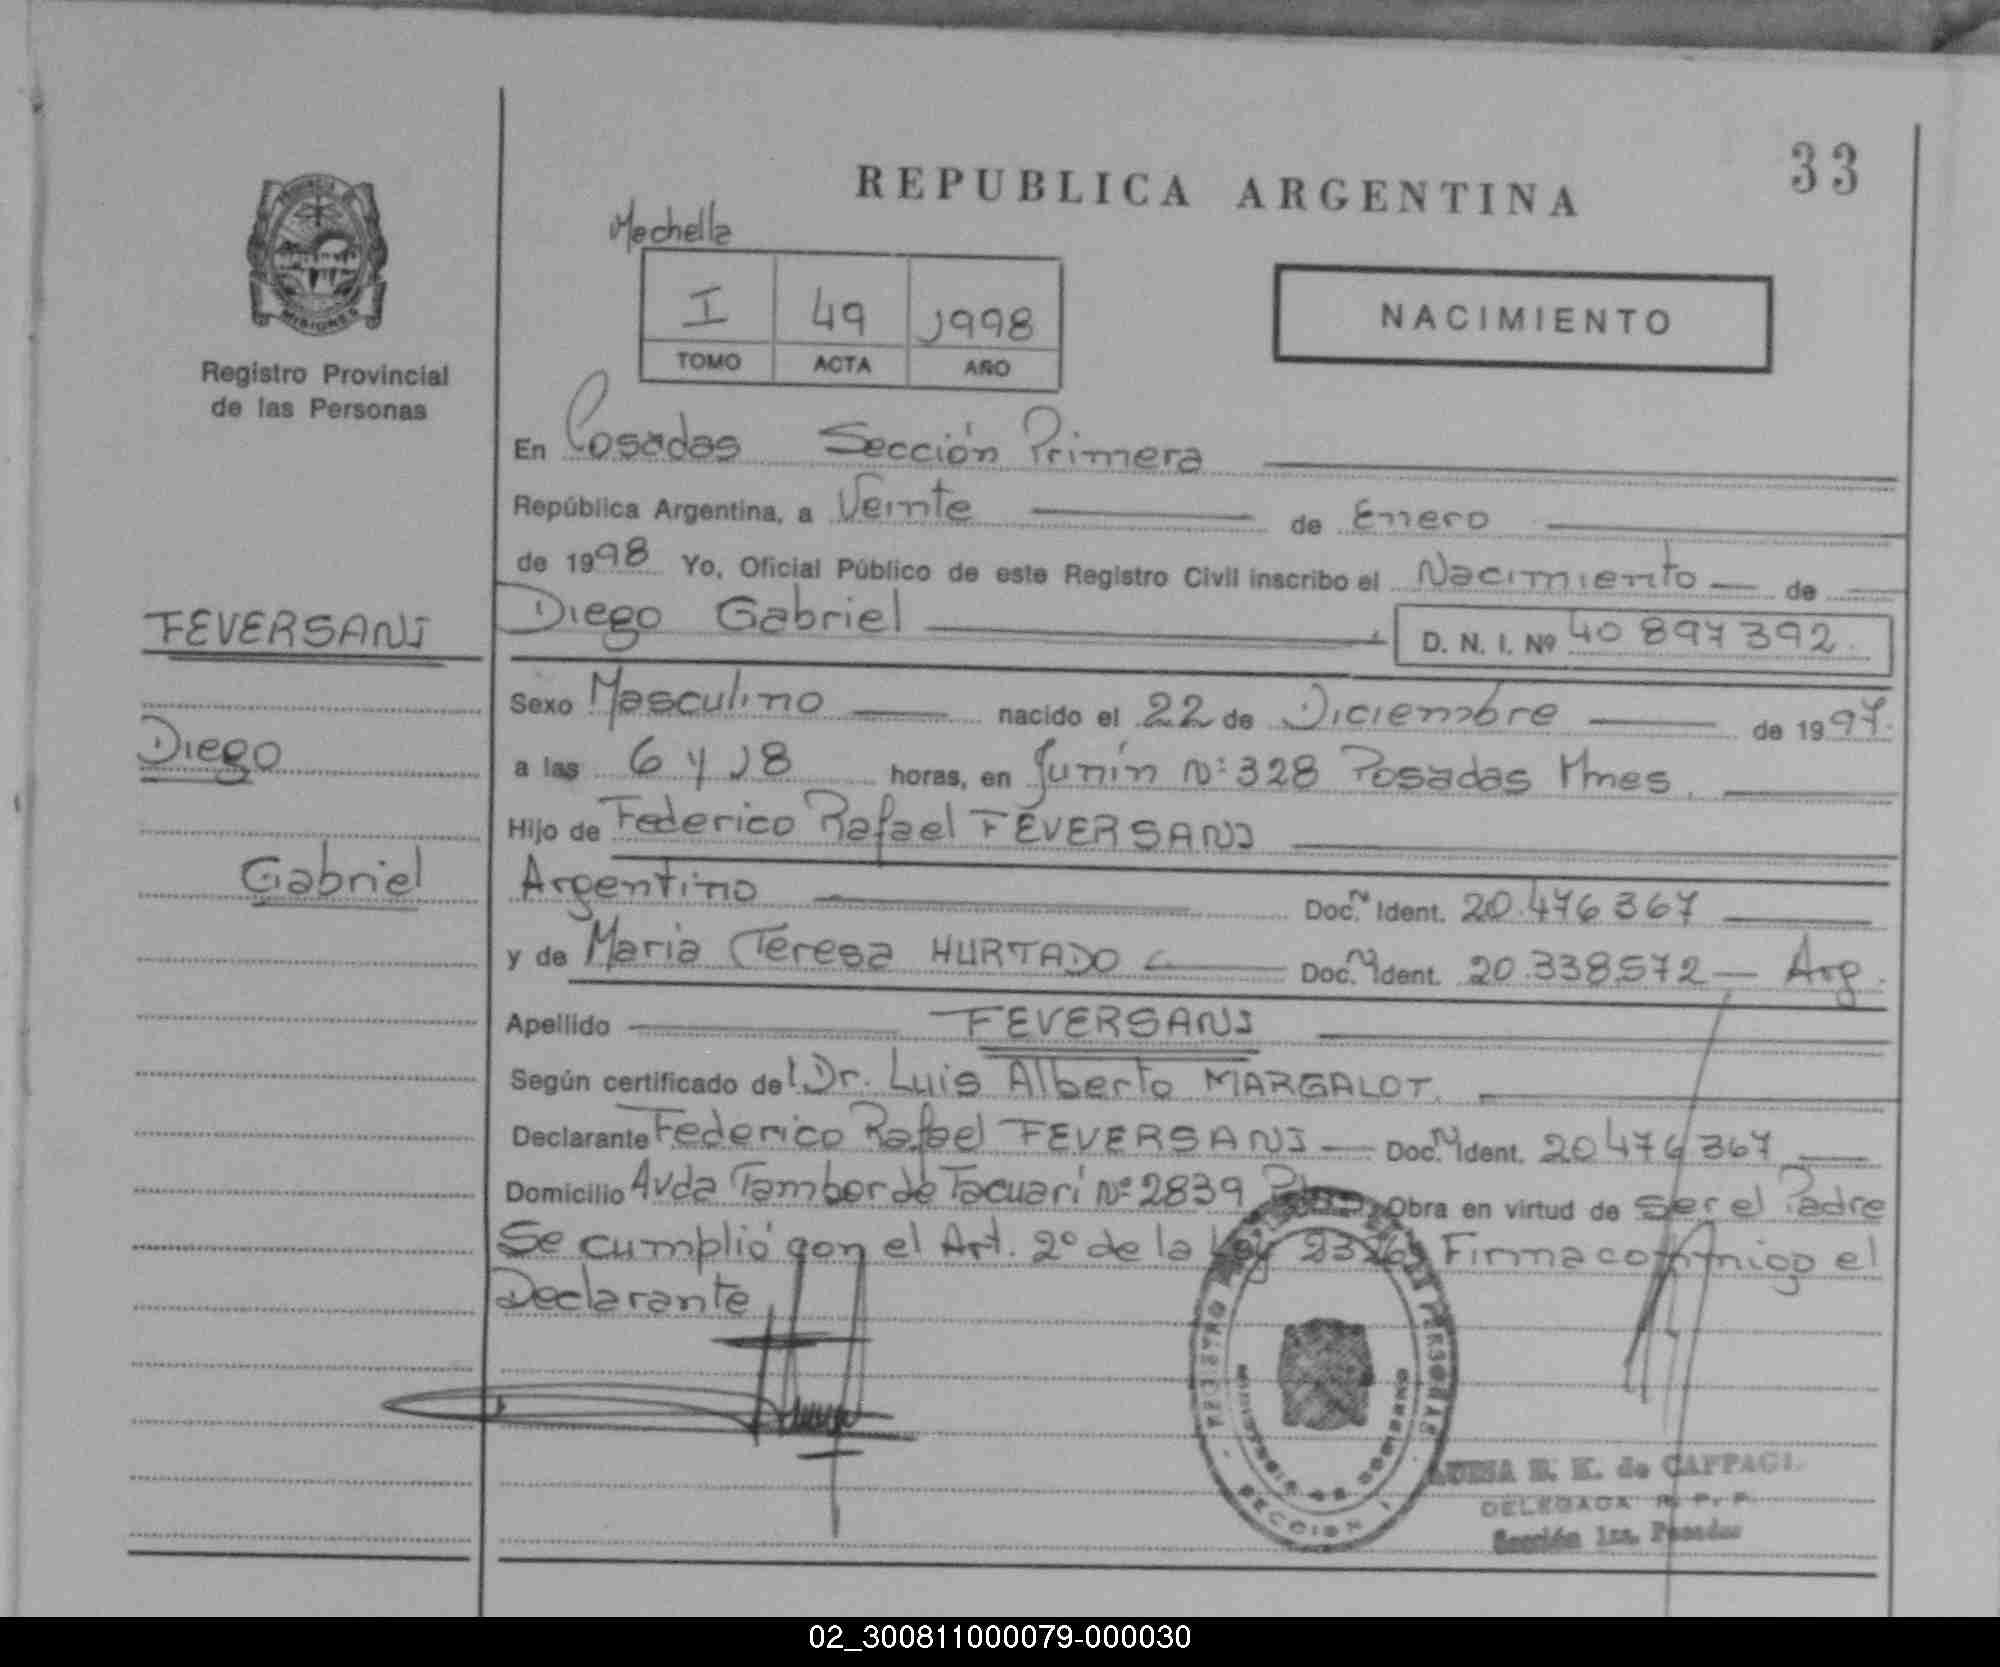 REPUBLICA ARGENTINA
33
Mechella
I 49 1998
TOMO ACTA AÑO
NACIMIENTO
MISIONES
Registro Provincial
de las Personas
En Posadas Sección Primera
República Argentina, a Veinte de Enero
de 1998 Yo, Oficial Público de este Registro Civil inscribo el Nacimiento de
Diego Gabriel D. N. I. Nº 40 897 392.
FEVERSANI
Diego
Gabriel
Sexo Masculino nacido el 22 de Diciembre de 1997.
a las 6 y 18 horas, en Junín Nº 328 Posadas Mnes.
Hijo de Federico Rafael FEVERSANI
Argentino Doc. N Ident. 20.476 367
y de Maria Teresa HURTADO Doc. N Ident. 20.338.572 Arg.
Apellido FEVERSANI
Según certificado de Dr. Luis Alberto MARGALOT.
Declarante Federico Rafael FEVERSANI Doc. N Ident. 20 476 367
Domicilio Avda Tambor de Tacuarí Nº 2839 Obra en virtud de Ser el Padre
Se cumplió con el Art. 2º de la Ley Firma conmigo el
Declarante
REGISTRO PERSONAS
MINISTERIO DE GOBIERNO
SECCION I
LUISA E. K. de CAPPACI.
DELEGADA R. P. P.
Sección 1ra. Posadas
02_300811000079-000030